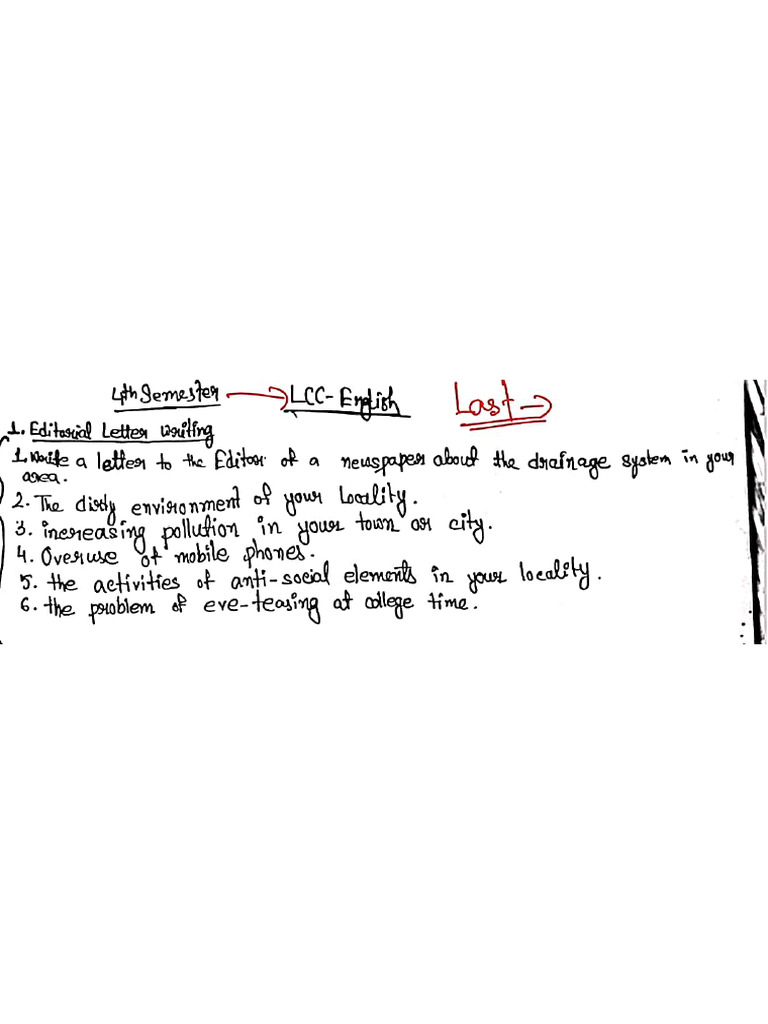 4th Semester → LCC- English Last →
1. Editorial Letter Writing
1. Write a letter to the Editor of a newspaper about the drainage system in your
area.
2. The dirty environment of your Locality.
3. increasing pollution in your town or city.
4. Overuse of mobile phones.
5. the activities of anti-social elements in your locality.
6. the problem of eve-teasing at college time.